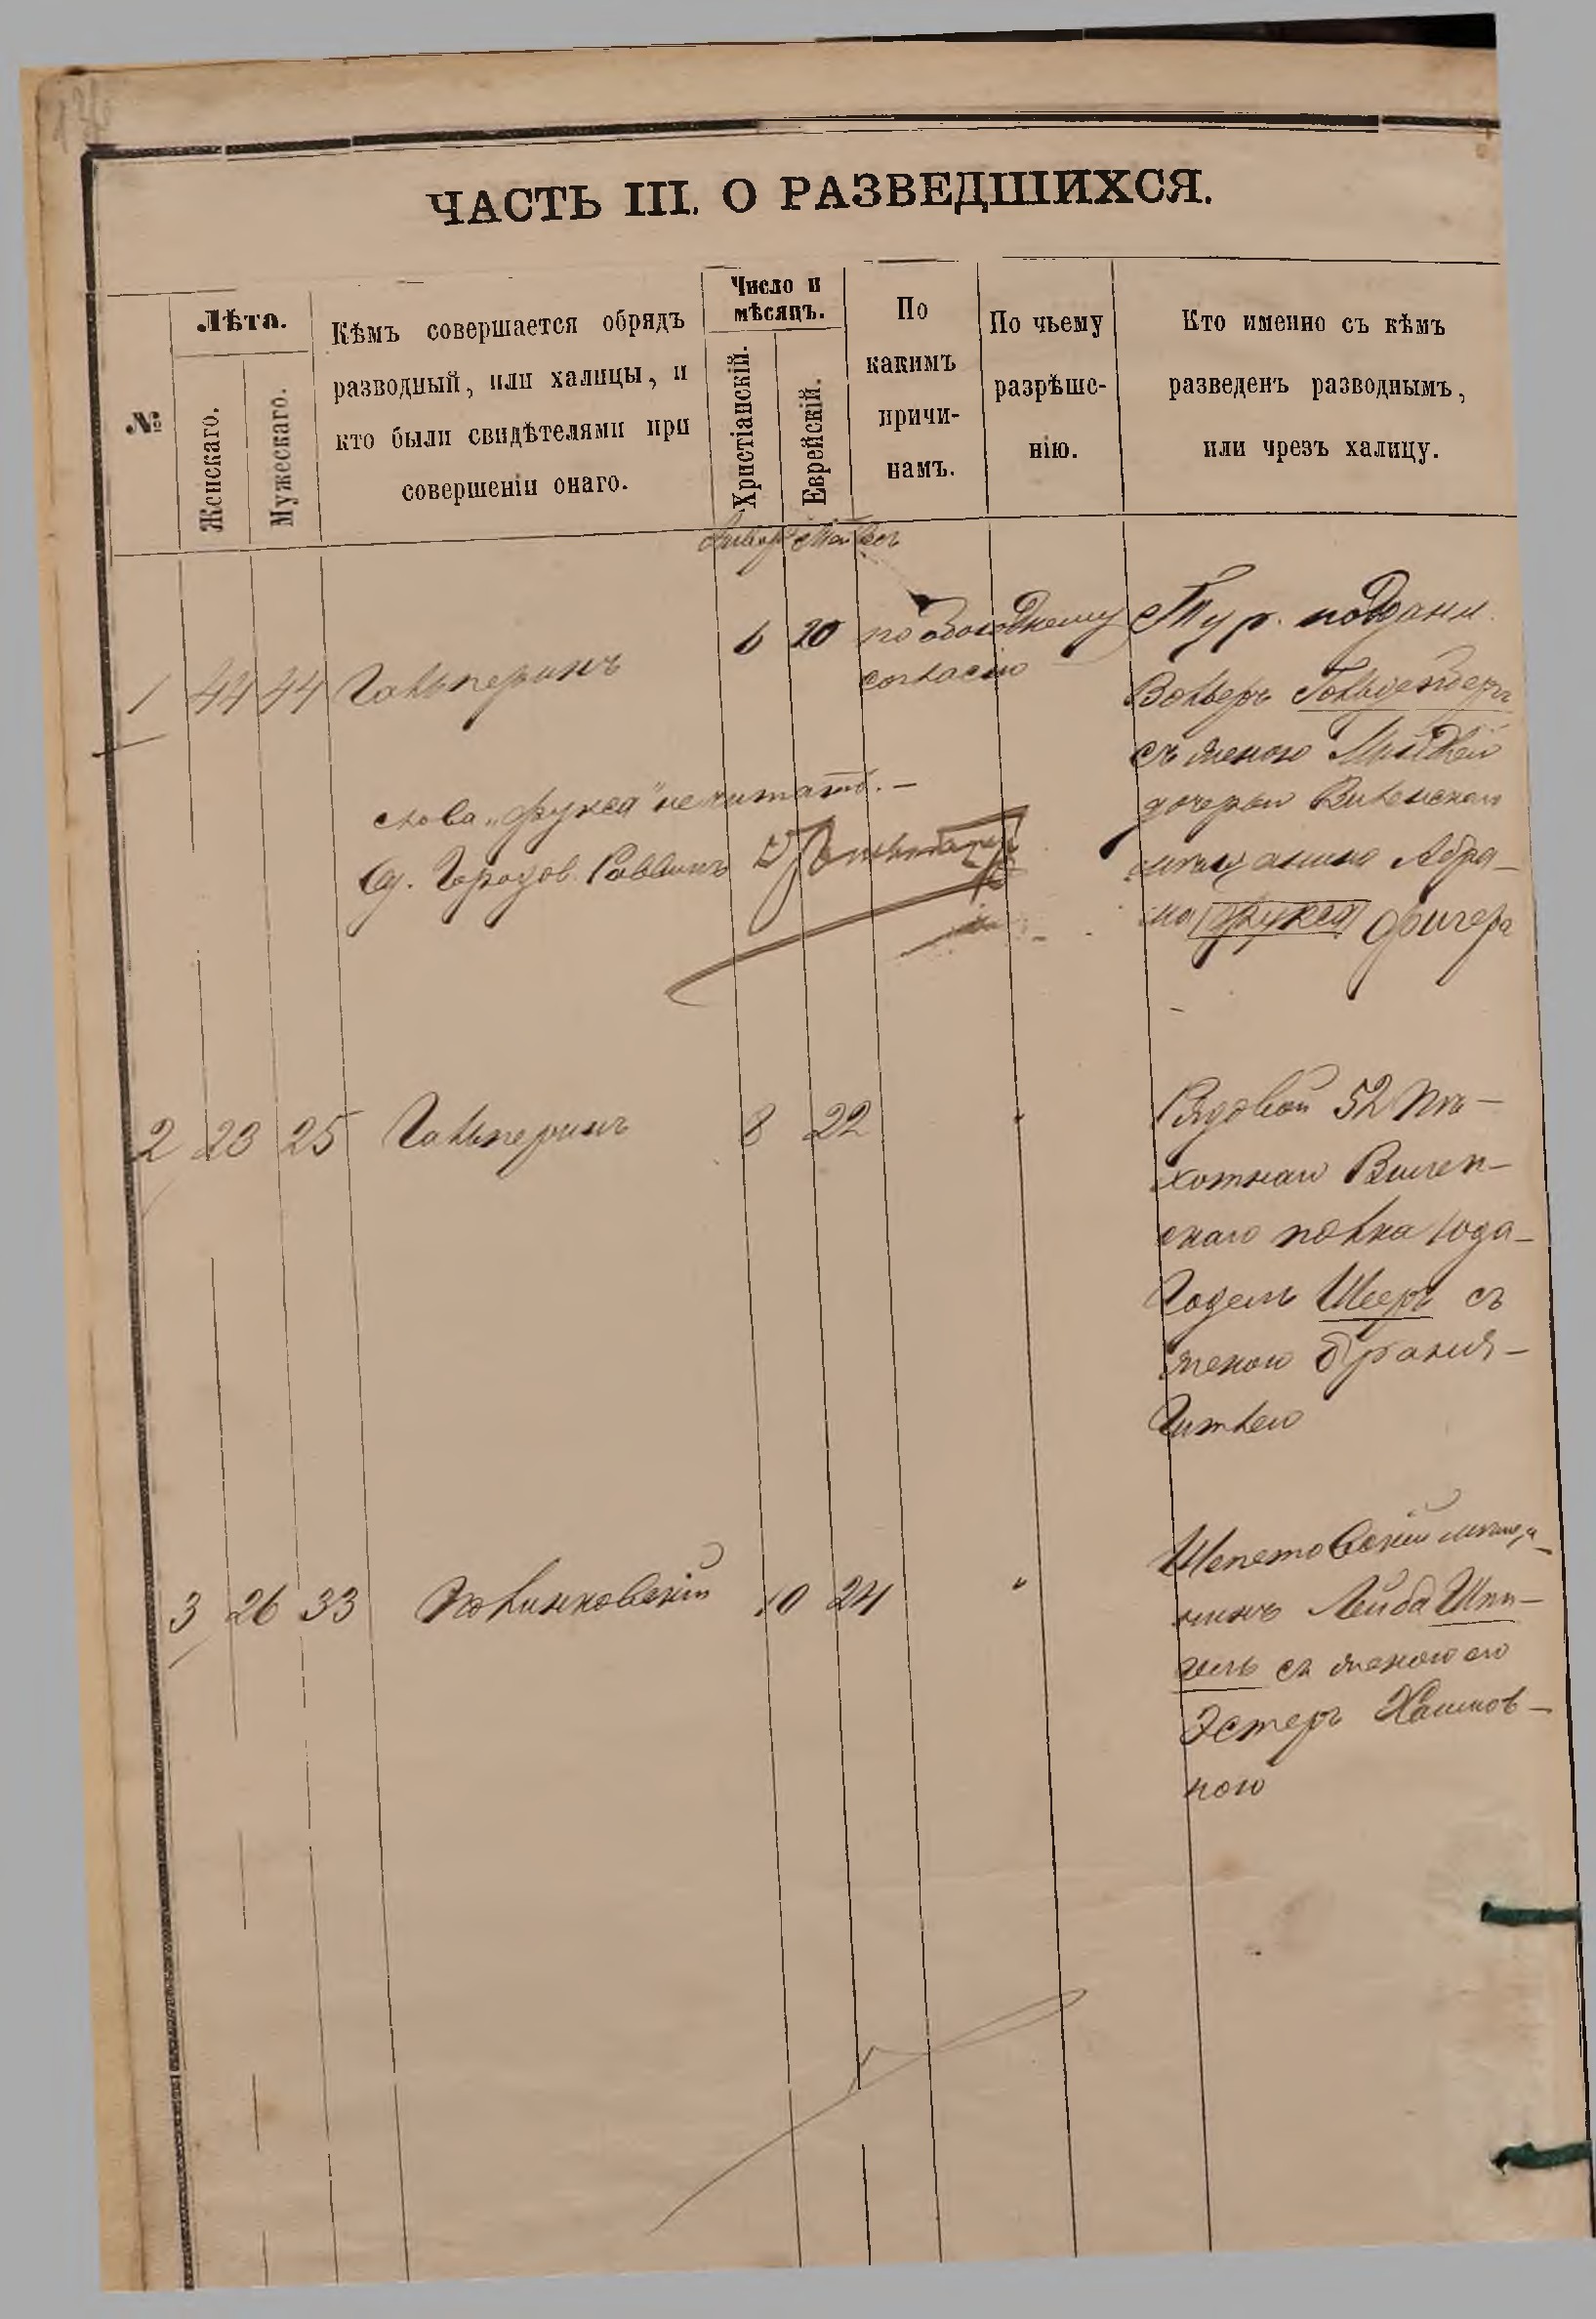 ЧАСТЬ III. О РАЗВЕДШИХСЯ.
№
Лѣта.
Женскаго.
Мужескаго.
Кѣмъ совершается обрядъ
разводный, или халицы, и
кто были свидѣтелями при
совершеніи онаго.
Число и
мѣсяцъ.
Христіанскій.
Еврейскій.
По
какимъ
причи-
намъ.
По чьему
разрѣше-
нію.
Кто именно съ кѣмъ
разведенъ разводнымъ,
или чрезъ халицу.
1 44 44 Гальперинъ
6 20 по обоюдному
согласію
Тур. поддан.
Вольфъ Гольденбергъ
съ женою
дочерью Виленскаго
мѣщанина Абра-
ма Фукса Фигера
слова „Фукса" не читать. —
Городов. Раввинъ
2 23 25 Гальперинъ 8 22 "
Рядовой 52 Пѣ-
хотнаго Вилен-
скаго полка Юда-
Годель Шеръ съ
женою
Гитлею
3 26 33 10 24 "
Шепетовскій мѣща-
нинъ Лейба Шпи-
гель съ женою его
Эстеръ Хаимов-
ною